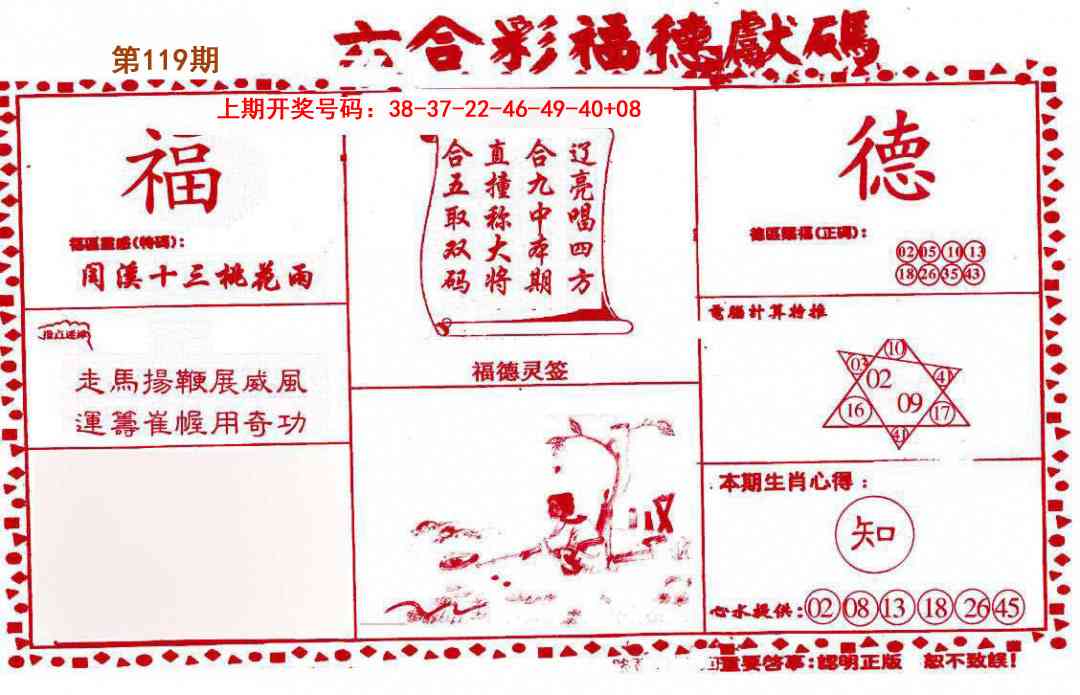 六合彩福德獻碼
第119期
上期开奖号码：38-37-22-46-49-40+08
福
福區靈感(特碼)：
閏溪十三桃花雨
走馬揚鞭展威風
運籌崔幄用奇功
辽亮唱四方
合九中本期
直撞称大将
合五取双码
福德灵签
德
(正码)：
02 05 10 13
18 26 35 43
電腦計算特推
10
03 02 41
16 09 17
41
本期生肖心得：
知
心水提供：02 08 13 18 26 45
重要啓事：認明正版 恕不致誤！